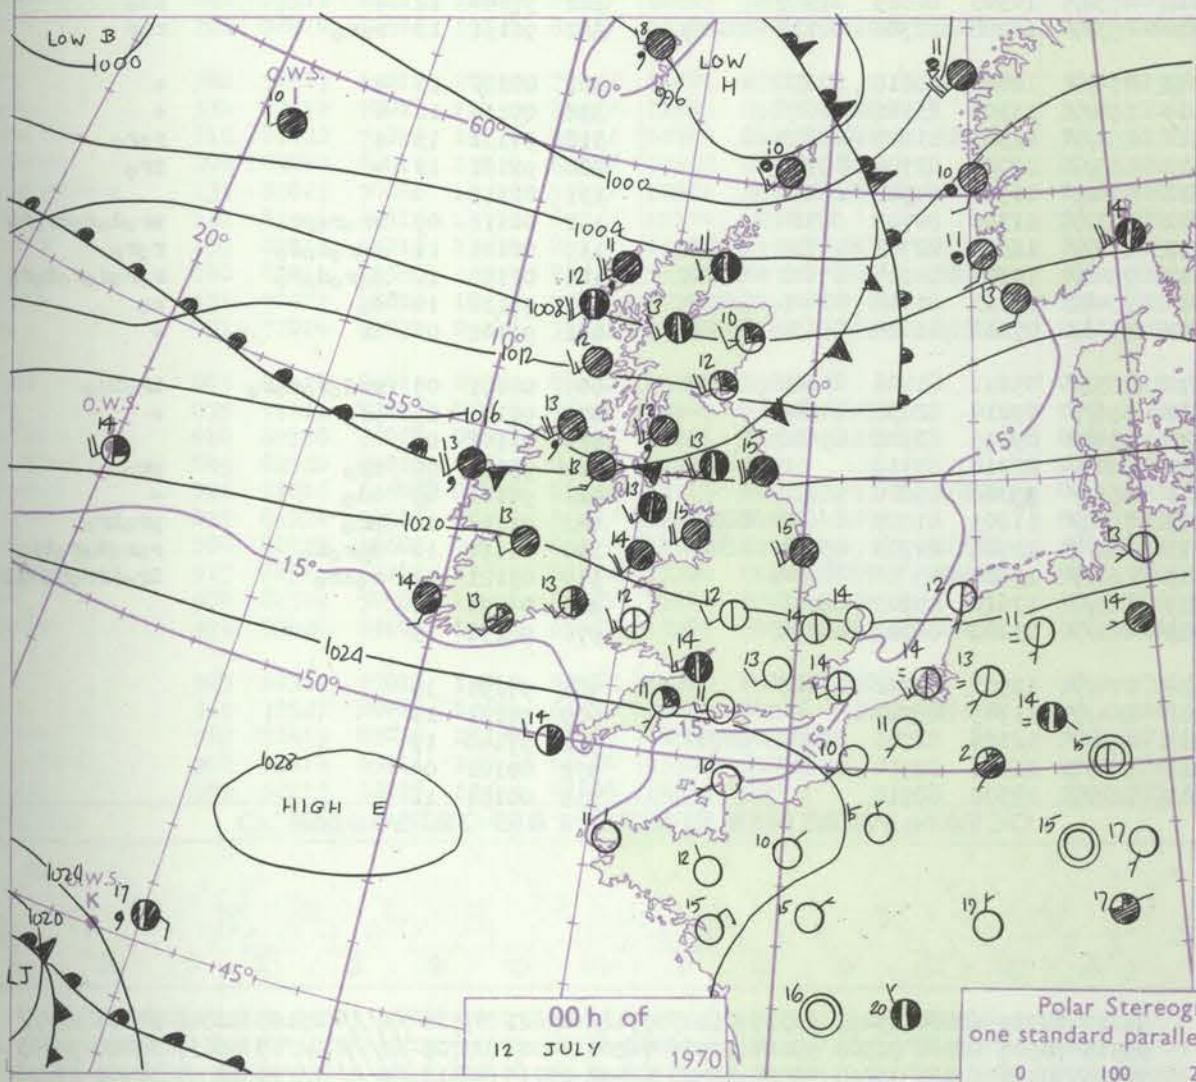 LOW B
1000
O.W.S.
I
10
8
9
996
LOW
H
11
70°
60°
10
10
1000
20°
1004
14
11
11
11
12
13
13
10
1008
10°
1012
12
12
0°
10°
O.W.S.
J
14
55°
1016
13
13
13
13
15
13
9
13
15°
1020
13
13
15
14
15
13
15°
14
13
13
12
12
14
14
12
11
14
1024
14
13
14
14
13
14
50°
11
11
14
15°
15°
11
2
15
10
10
1028
HIGH E
11
15
15
17
10
12
1024
O.W.S.
K
17
9
1020
15
15
19
17
LJ
45°
16
20
00 h of
12 JULY
1970
Polar Stereog
one standard paralle
0 100 2